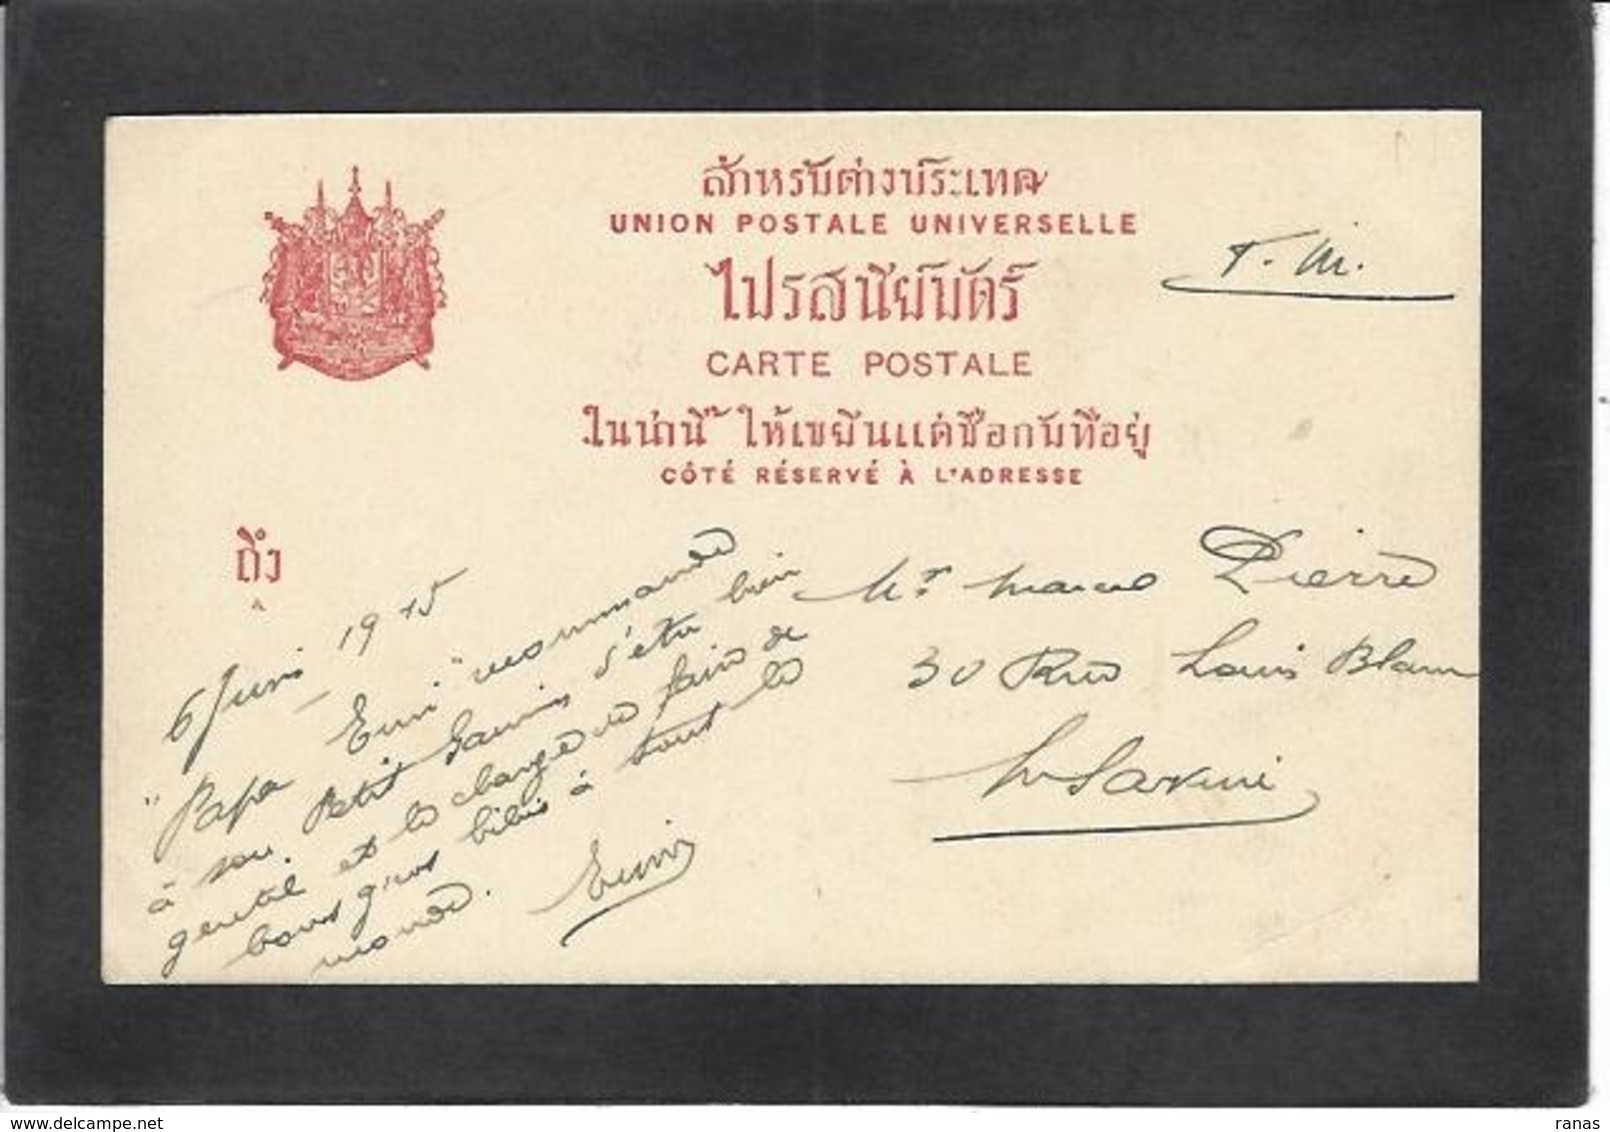 สำหรับต่างประเทศ
UNION POSTALE UNIVERSELLE
F. M.
ไปรสนียบัตร์
CARTE POSTALE
ในน่านี้ ให้เขียนแต่ชื่อกับที่อยู่
CÔTÉ RÉSERVÉ À L'ADRESSE
ถึง
6 Juin 1915
"Papa Emi" recommande
à son Petit Gamin d'être bien
gentil et le charge de faire de
bons gros bibis à tout le
monde.
Mr Marcel Pierre
30 Rue Louis Blanc
ranas